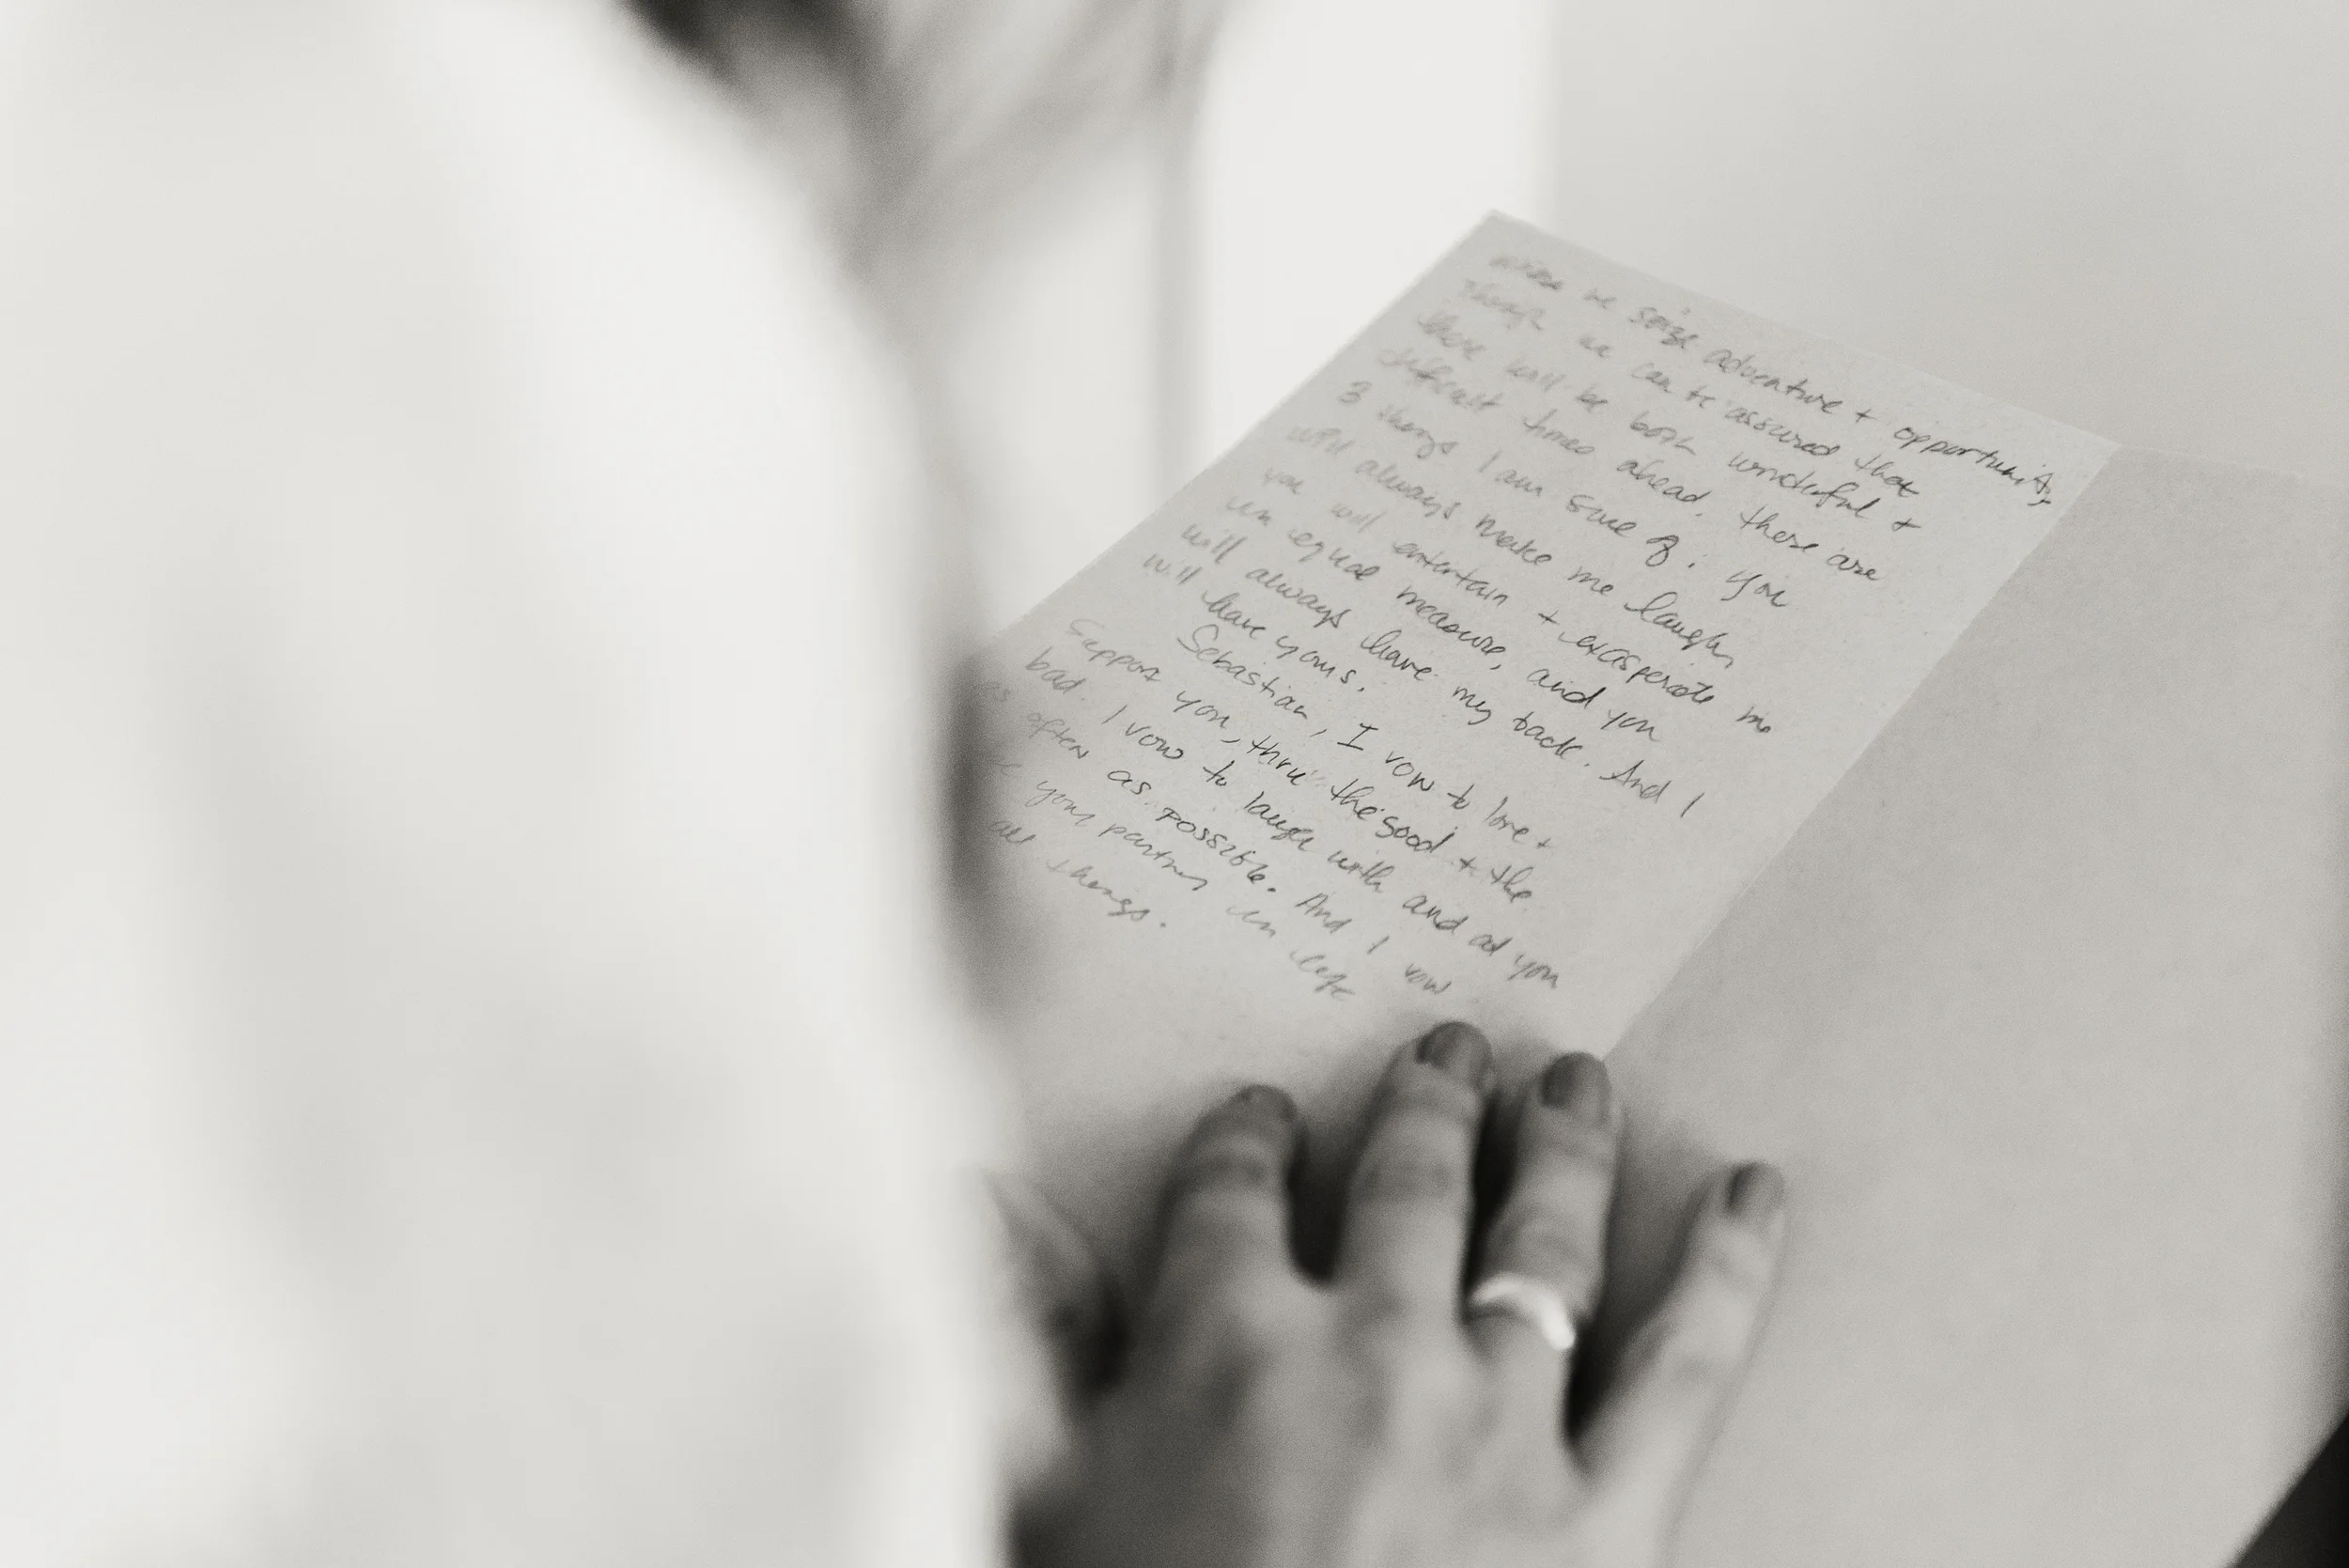 we seize adventure + opportunity,
though we can be assured that
there will be both wonderful +
difficult times ahead. there are
3 things I am sure of: you
will always make me laugh,
you will entertain + exasperate me
in equal measure, and you
will always have my back. And I
will have yours.
Sebastian, I vow to love +
support you, thru the good + the
bad. I vow to laugh with and at you
as often as possible. And I vow
your partner in life
all things.